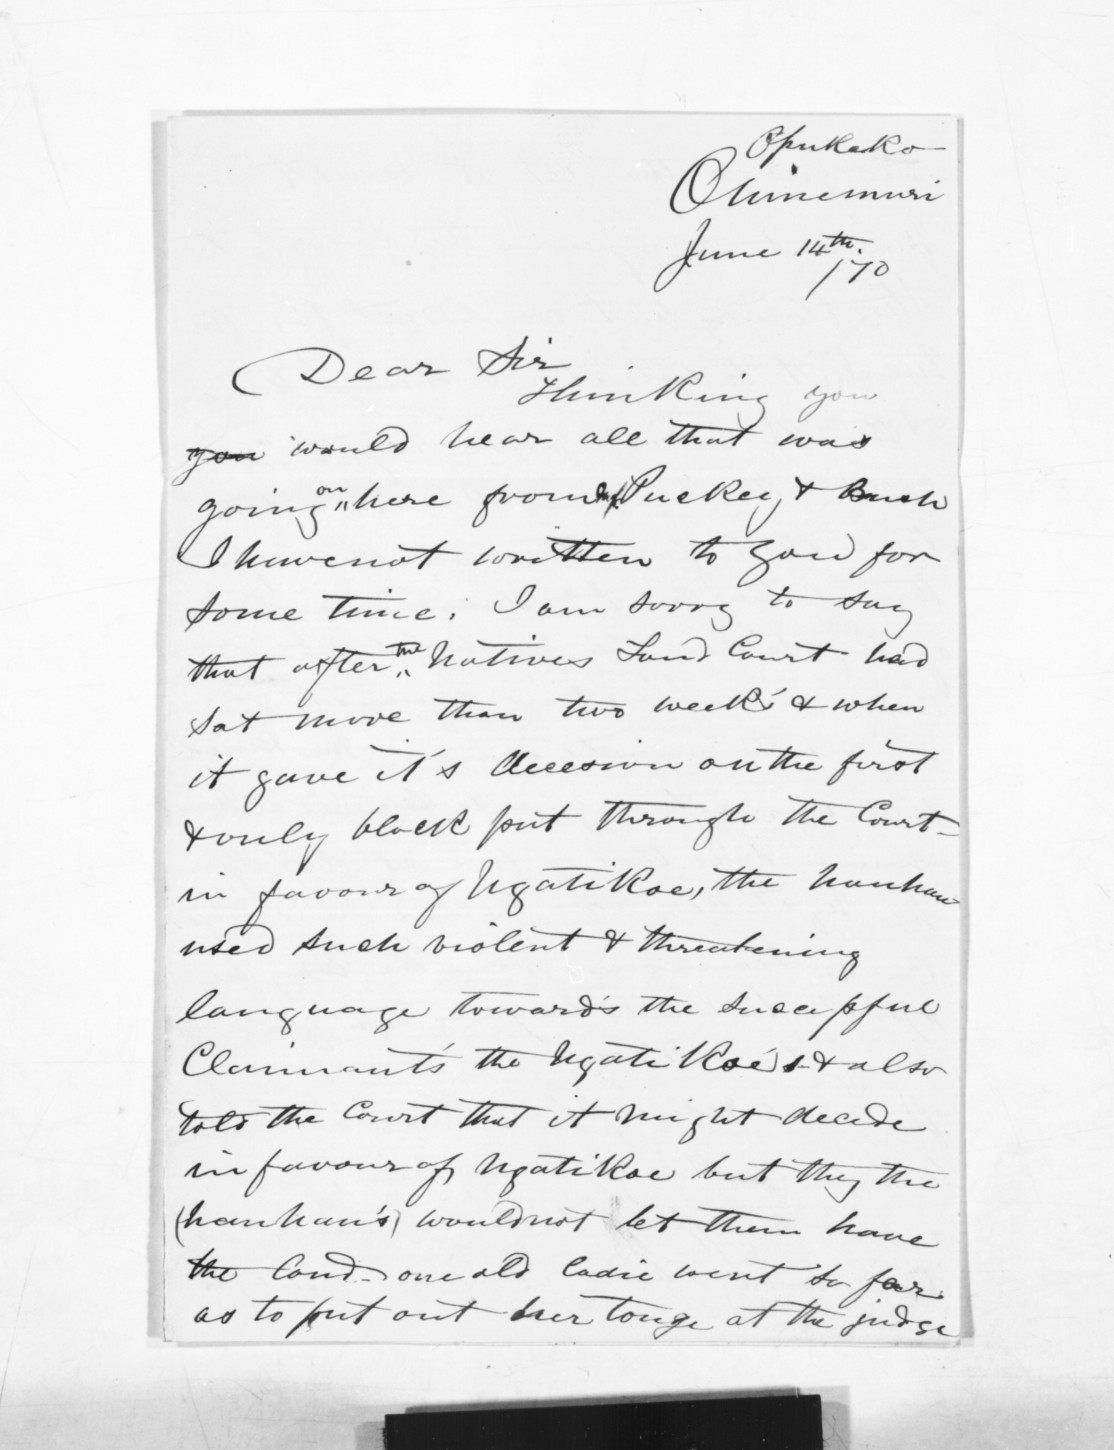 Opukeko
Ohinemuri
June 14th.
/70
Dear Sir
Thinking you
you would hear all that was
going on here from Puckey & Bush
I have not written to you for
some time. I am sorry to say
that after the Natives Land Court had
sat more than two week's & when
it gave it's decesion on the first
& only block put through the Court-
in favour of Ngatikoe, the hauhau
used such violent & threatening
language toward's the successful
Claimant's the Ngatikoe's & also
told the Court that it might decide
in favour of Ngatikoe but they the
(hauhau's) would not let them have
the land - one old ladie went so far
as to put out her tonge at the judge